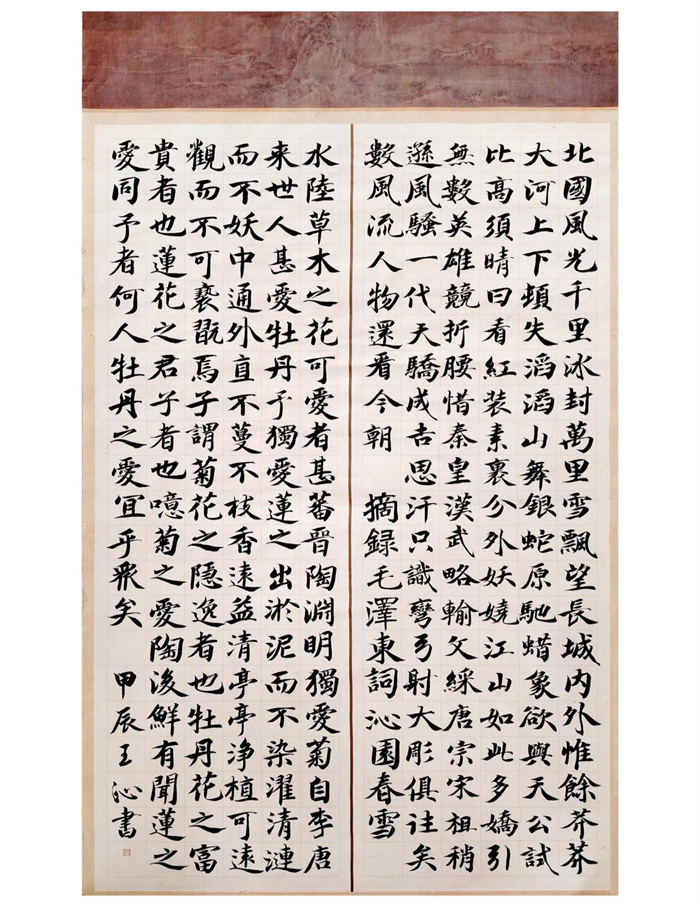 北國風光千里冰封萬里雪飄望長城内外惟餘莽莽
大河上下頓失滔滔山舞銀蛇原馳蜡象欲與天公試
比高須晴日看紅装素裹分外妖嬈江山如此多嬌引
無數英雄競折腰惜秦皇漢武略輸文綵唐宗宋祖稍
遜風騷一代天驕成吉思汗只識彎弓射大彫俱往矣
數風流人物還看今朝 摘録毛澤東詞沁園春雪
水陸草木之花可愛者甚蕃晉陶淵明獨愛菊自李唐
来世人甚愛牡丹予獨愛蓮之出淤泥而不染濯清漣
而不妖中通外直不蔓不枝香遠益清亭亭净植可遠
觀而不可褻翫焉予謂菊花之隱逸者也牡丹花之富
貴者也蓮花之君子者也噫菊之愛陶後鮮有聞蓮之
愛同予者何人牡丹之愛宜乎眾矣 甲辰王沁書